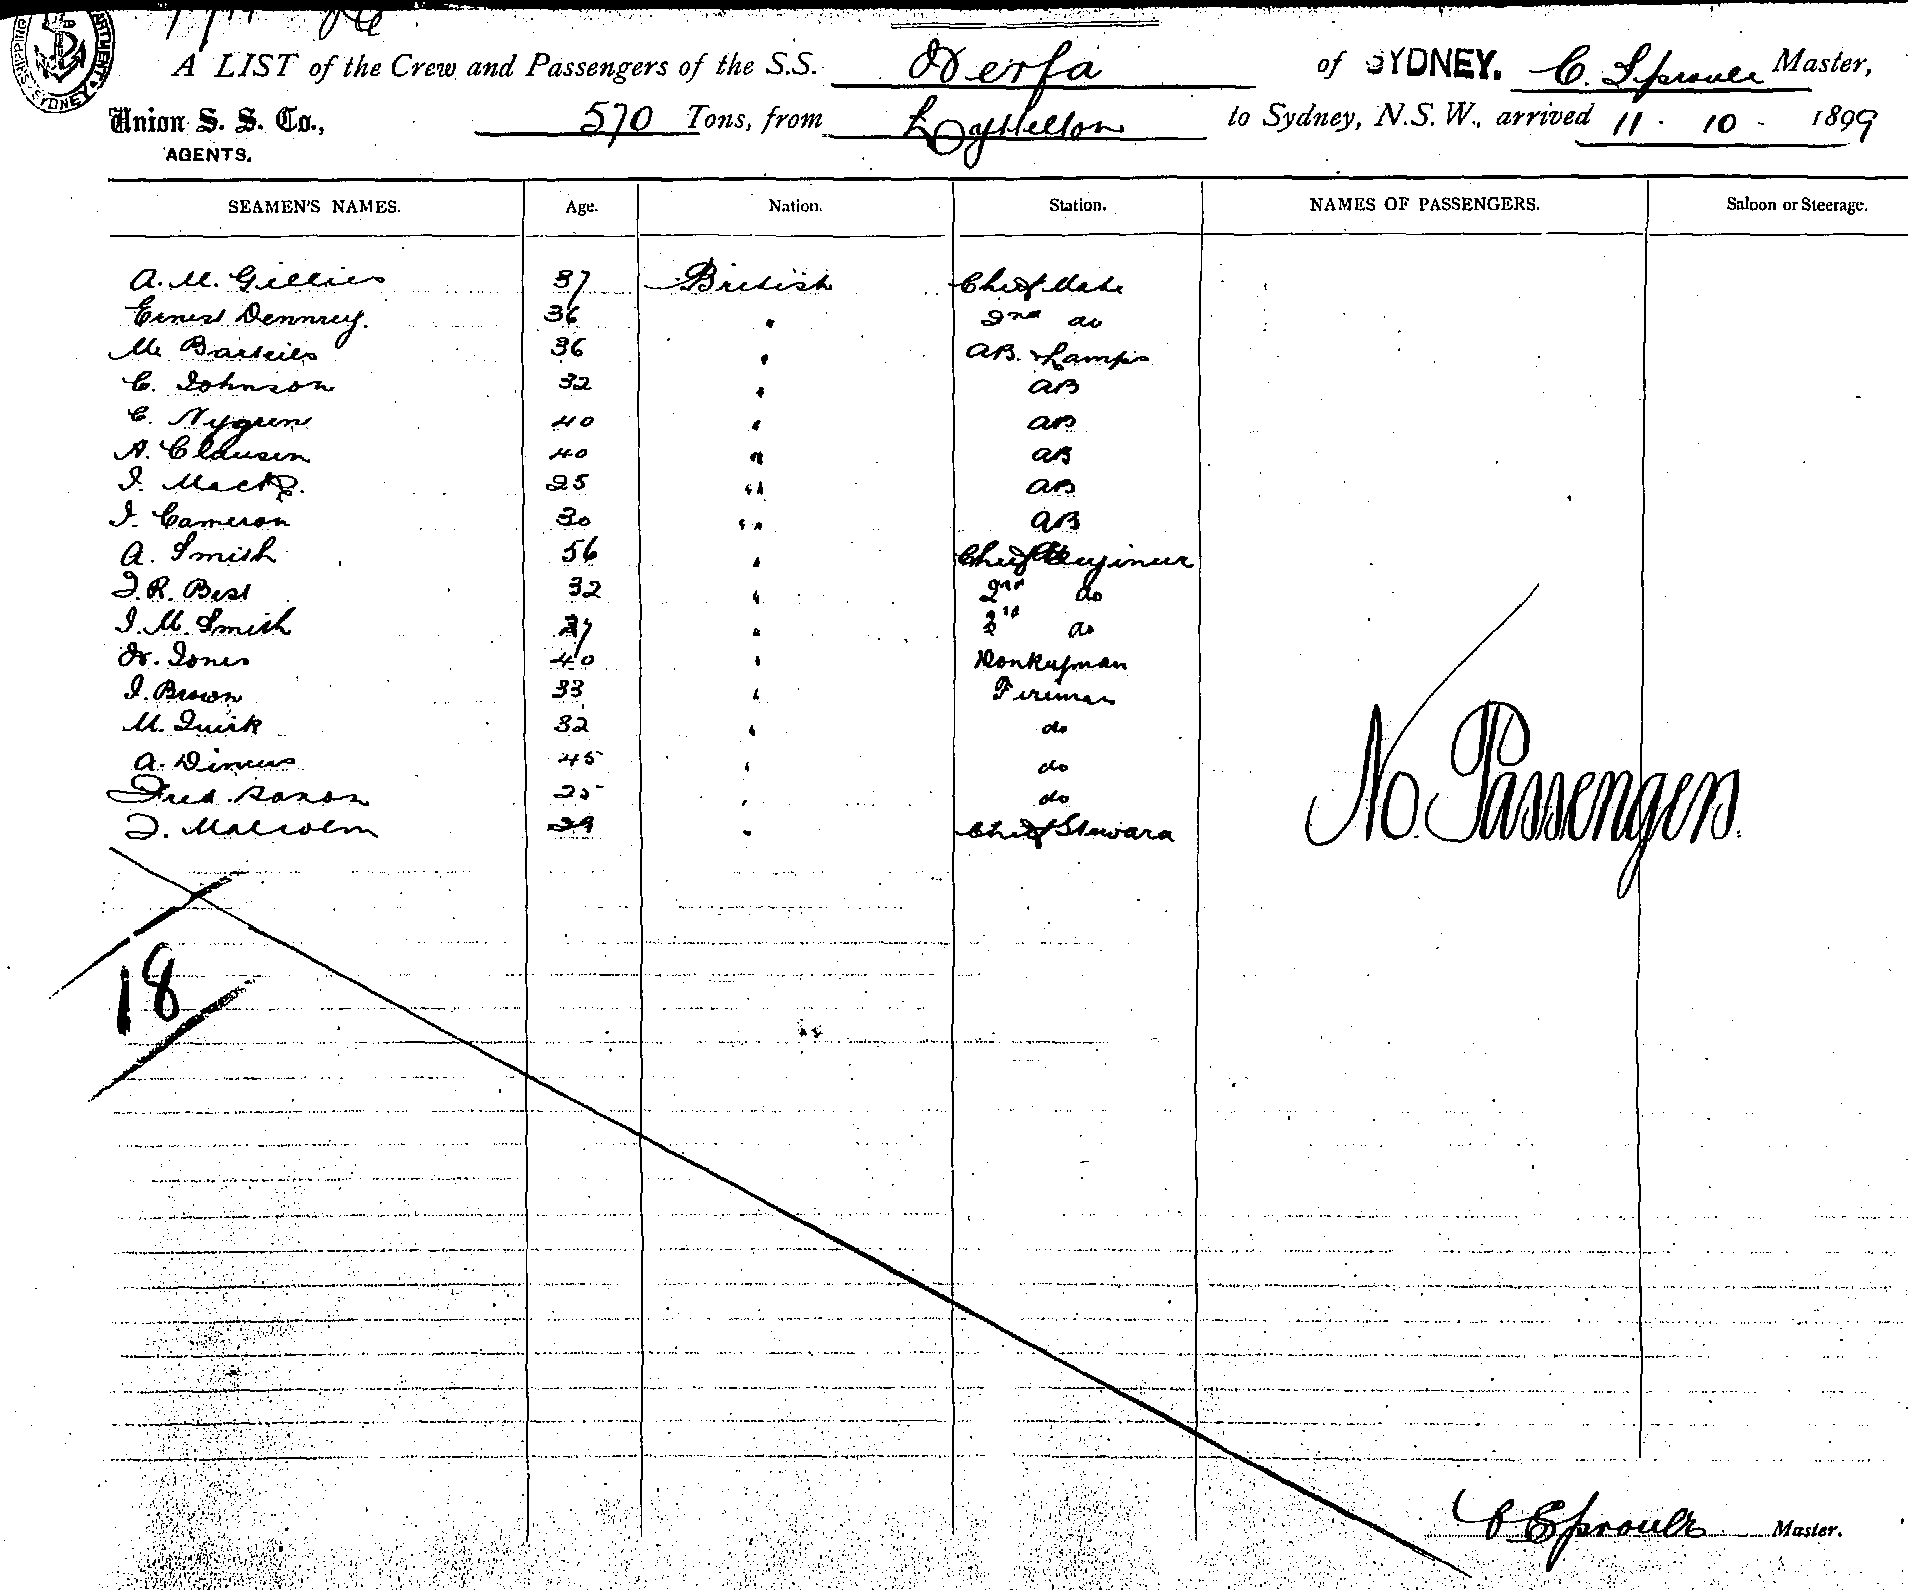 A LIST of the Crew and Passengers of the S.S. Herfa of SYDNEY. C. Sproule Master,
Union S. S. Co., 570 Tons, from Lyttelton to Sydney, N.S.W., arrived 11 . 10 . 1899
AGENTS.
SEAMEN'S NAMES. Age. Nation. Station. NAMES OF PASSENGERS. Saloon or Steerage.
A. M. Gillies 37 British Chief Mate
Ernest 36 " 2nd do
M. 36 " AB. & Lamps
C. Johnson 32 " AB
C. Nygren 40 " AB
A. Clausen 40 " AB
J. 25 " AB
J. Cameron 30 " AB
A. Smith 56 " Chief Engineer
J. R. Best 32 " 2nd do
J. M. Smith " 3rd do
H. Jones 40 " Donkeyman
J. Brown 33 " Fireman
M. Quirk 32 " do
A. 45 " do
Fred 25 " do
J. Malcolm 29 " Chief Steward
No. Passengers.
18
C Sproule Master.